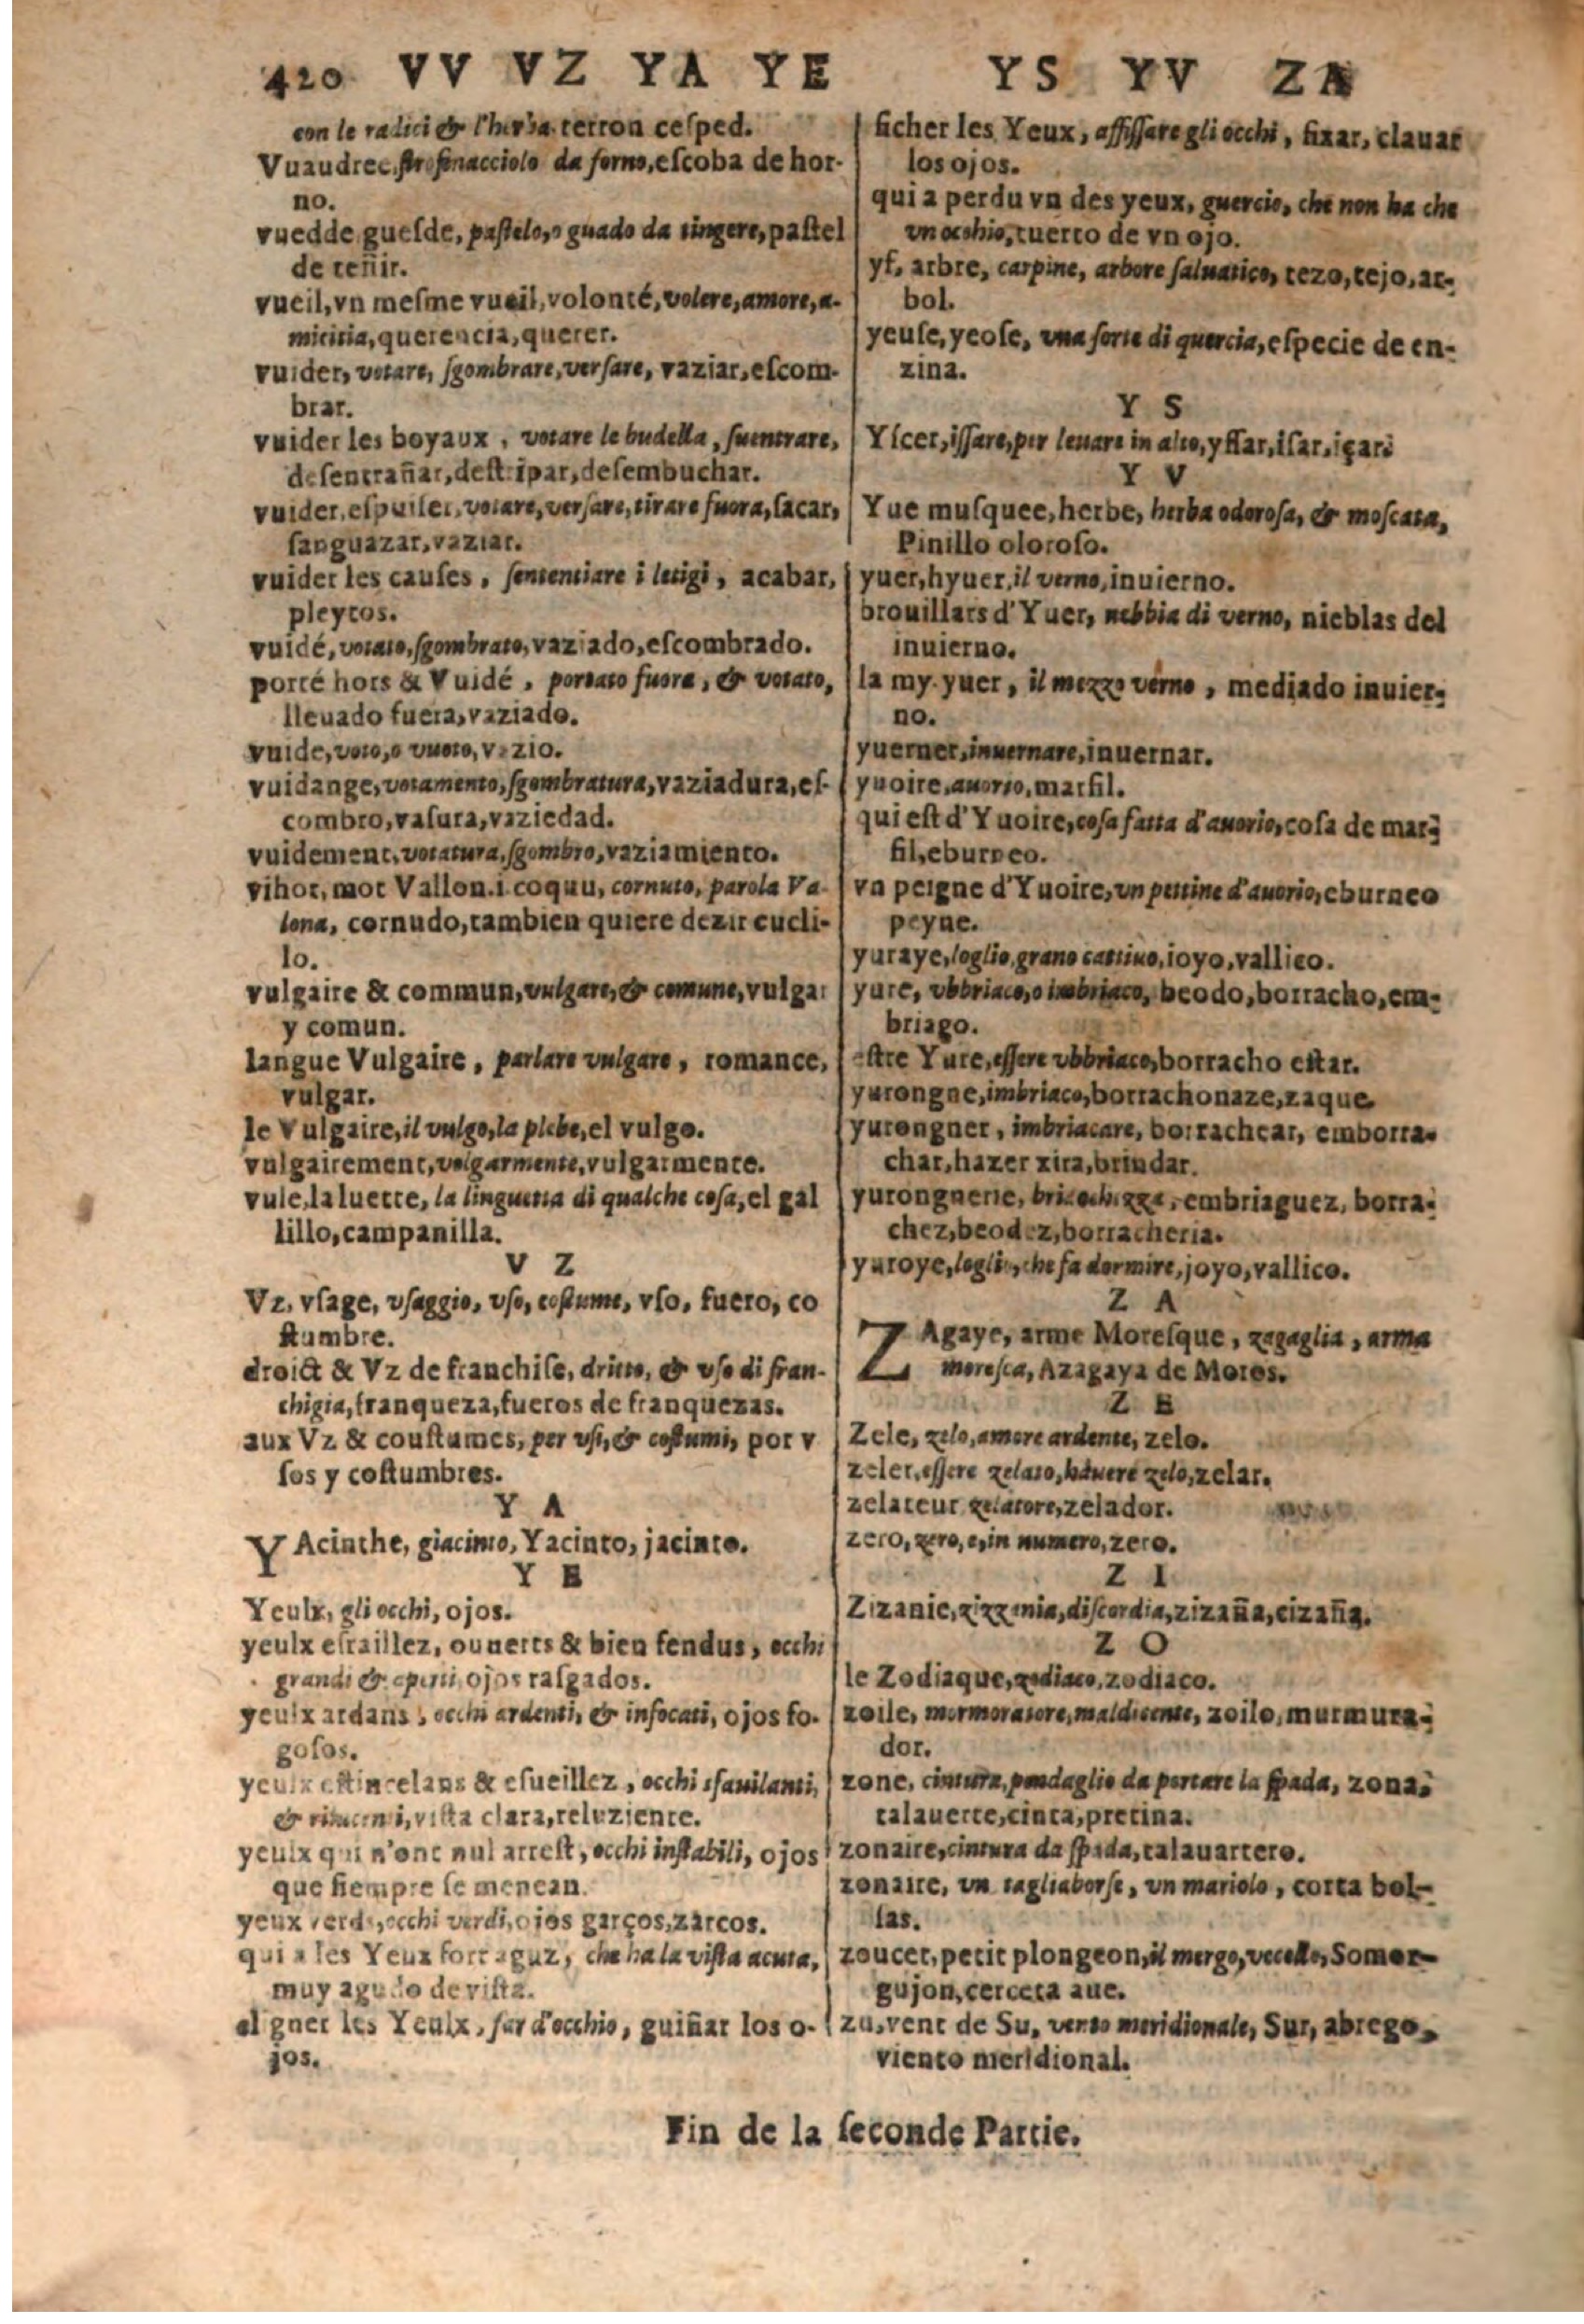 420 VV VZ YA YE YS YV ZA
con le radici & l'herba. terron ceſped.
Vuaudree, ſtrofinacciolo da forno, eſcoba de hor-
no.
vuedde gueſde, paſtelo, o guado da tingere, paſtel
de teñir.
vueil, vn meſme vueil, volonté, volere, amore, a-
micitia, querencia, querer.
vuider, votare, ſgombrare, verſare, vaziar, eſcom-
brar.
vuider les boyaux, votare le budella, ſuentrare,
deſentrañar, deſtripar, deſembuchar.
vuider, eſpuiſer, votare, verſare, tirare fuora, ſacar,
ſanguazar, vaziar.
vuider les cauſes, ſententiare i letigi, acabar,
pleytos.
vuidé, votato, ſgombrato, vaziado, eſcombrado.
porté hors & Vuidé, portato fuora, & votato,
lleuado fuera, vaziado.
vuide, voto, o vuoto, vazio.
vuidange, votamento, ſgombratura, vaziadura, eſ-
combro, vaſura, vaziedad.
vuidement, votatura, ſgombro, vaziamiento.
vihot, mot Vallon. i. coquu, cornuto, parola Va-
lona, cornudo, tambien quiere dezir cucli-
lo.
vulgaire & commun, vulgare, & comune, vulgar
y comun.
langue Vulgaire, parlare vulgare, romance,
vulgar.
le Vulgaire, il vulgo, la plebe, el vulgo.
vulgairement, volgarmente, vulgarmente.
vule, la luette, la linguetta di qualche coſa, el gal
lillo, campanilla.
V Z
Vz, vſage, vſaggio, vſo, coſtume, vſo, fuero, co
ſtumbre.
droict & Vz de franchiſe, dritto, & vſo di fran-
chigia, franqueza, fueros de franquezas.
aux Vz & couſtumes, per vſi, & coſtumi, por v
ſos y coſtumbres.
Y A
YAcinthe, giacinto, Yacinto, jacinto.
Y E
Yeulx, gli occhi, ojos.
yeulx eſraillez, ouuerts & bien fendus, occhi
grandi & aperti, ojos raſgados.
yeulx ardans, occhi ardenti, & infocati, ojos fo-
goſos.
yeulx eſtincelans & eſueillez, occhi sfauilanti,
& rilucenti, viſta clara, reluziente.
yeulx qui n'ont nul arreſt, occhi inſtabili, ojos
que ſiempre ſe menean.
yeux verds, occhi verdi, ojos garços, zarcos.
qui a les Yeux fort aguz, che ha la viſta acuta,
muy agudo de viſta.
aligner les Yeulx, far d'occhio, guiñar los o-
jos.
ficher les Yeux, affiſſare gli occhi, fixar, clauar
los ojos.
qui a perdu vn des yeux, guercio, che non ha che
vn occhio, tuerto de vn ojo.
yf, arbre, carpine, arbore ſaluatico, tezo, tejo, ar-
bol.
yeuſe, yeoſe, vna ſorte di quercia, eſpecie de en-
zina.
Y S
Yſcer, iſſare, per leuare in alto, yſſar, iſar, içar.
Y V
Yue muſquee, herbe, herba odoroſa, & moſcata,
Pinillo oloroſo.
yuer, hyuer, il verno, inuierno.
brouillars d'Yuer, nebbia di verno, nieblas del
inuierno.
la my-yuer, il mezzo verno, mediado inuier-
no.
yuerner, inuernare, inuernar.
yuoire, auorio, marfil.
qui eſt d'Yuoire, coſa fatta d'auorio, coſa de mar-
fil, eburneo.
vn peigne d'Yuoire, vn pettine d'auorio, eburneo
peyne.
yuraye, loglio, grano cattiuo, ioyo, vallico.
yure, vbbriaco, o imbriaco, beodo, borracho, em-
briago.
eſtre Yure, eſſere vbbriaco, borracho eſtar.
yurongne, imbriaco, borrachonaze, zaque.
yurongner, imbriacare, borrachear, emborra-
char, hazer xira, brindar.
yurongnerie, embriaguez, borra-
chez, beodez, borracheria.
yuroye, loglio, che fa dormire, joyo, vallico.
Z A
ZAgaye, arme Moreſque, zagaglia, arma
moreſca, Azagaya de Moros.
Z E
Zele, zelo, amore ardente, zelo.
zeler, eſſere zelato, hauere zelo, zelar.
zelateur zelatore, zelador.
zero, zero, e, in numero, zero.
Z I
Zizanie, zizzania, diſcordia, zizaña, cizaña.
Z O
le Zodiaque, zodiaco, zodiaco.
zoile, mormoratore, maldicente, zoilo, murmura-
dor.
zone, cintura, pendaglio da portare la ſpada, zona,
talauerte, cinta, pretina.
zonaire, cintura da ſpada, talauartero.
zonaire, vn tagliaborſe, vn mariolo, corta bol-
ſas.
zoucet, petit plongeon, il mergo, vccello, Somor-
gujon, cerceta aue.
zu, vent de Su, vento meridionale, Sur, abrego,
viento meridional.
Fin de la ſeconde Partie.